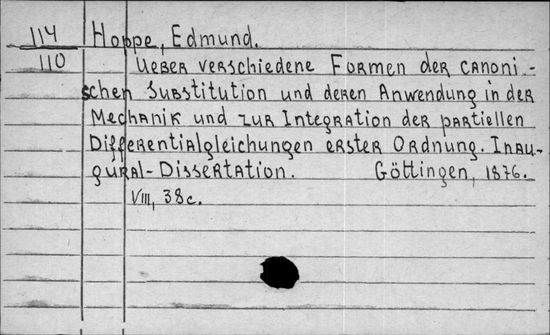 114 Hoppe, Edmund.
110 Ueber verschiedene Formen der canoni-
schen Substitution und deren Anwendung in der
Mechanik und zur Integration der partiellen
Differentialgleichungen erster Ordnung. Inau-
gural-Dissertation. Göttingen, 1876.
VIII, 38c.